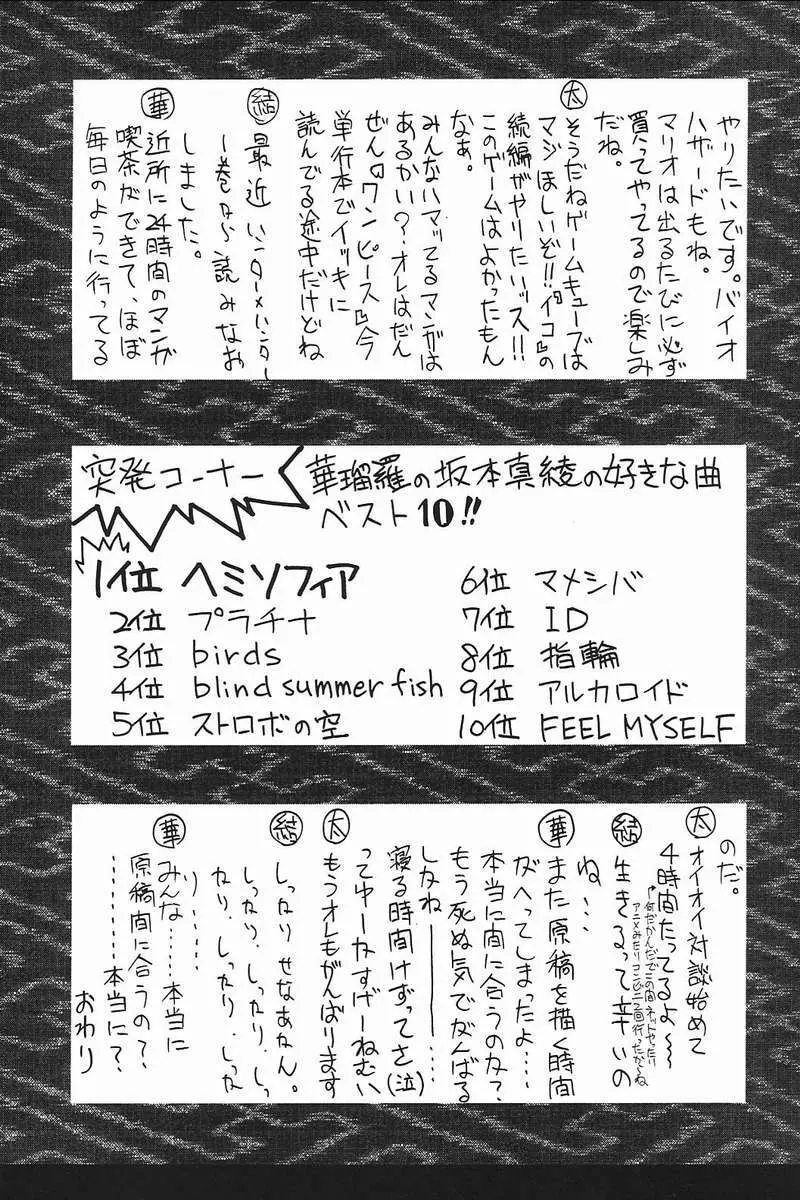 やりたいです。バイオ
ハザードもね。
マリオは出るたびに必ず
買ってやってるので楽しみ
だね。
太 そうだねゲームキューブでは
マジほしいぞ!!『イコ』の
続編がやりたいッス!!
このゲームはよかったもん
なぁ。
みんなハマッてるマンガは
あるかい?オレはだん
ぜん『ワンピース』今
単行本でイッキに
読んでる途中だけどね
結 最近ハンター×ハンター
1巻から読みなお
しました。
華 近所に24時間のマンガ
喫茶ができて、ほぼ
毎日のように行ってる
突発コーナー
華瑠羅の坂本真綾の好きな曲
ベスト10!!
1位 ヘミソフィア
2位 プラチナ
3位 birds
4位 blind summer fish
5位 ストロボの空
6位 マメシバ
7位 ID
8位 指輪
9位 アルカロイド
10位 FEEL MYSELF
のだ。
太 オイオイ対談始めて
4時間たってるよ〜
何だかんだでこの間ネットやったり
アニメみたりコンビニ2回行ったからね
結 生きるって辛いの
ね…
華 また原稿を描く時間
がへってしまったよ…
本当に間に合うのか?
もう死ぬ気でがんばる
しかね――――…
寝る時間けずってさ(泣)
ってゆーかすげーねむい
太 もうオレもがんばります
結 しったりせなあかん。
しったり、しったり、しっ
たり、しったり、しった
り……
華 みんな……本当に
原稿間に合うの?
…………本当に?
おわり